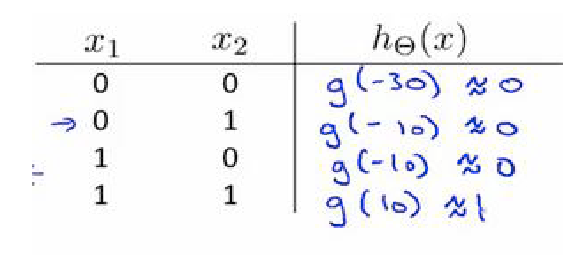 x₁ x₂ h_Θ(x)
0 0 g(-30) ≈ 0
→ 0 1 g(-10) ≈ 0
1 0 g(-10) ≈ 0
1 1 g(10) ≈ 1